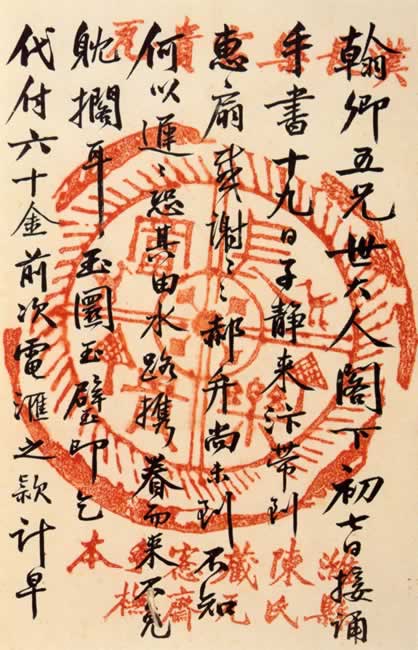 翰卿五兄世大人閣下初七日接誦
手書十九日子靜來汴帶到
惠扇感謝〻郝升尚未到不知
何以遲〻恐其由水路攜眷而來不免
耽擱耳玉圜玉璧即乞
代付六十金前次電滙之款計早
漢 貴 瓦
濰縣
陳氏
藏瓦
愙齋
橅
本